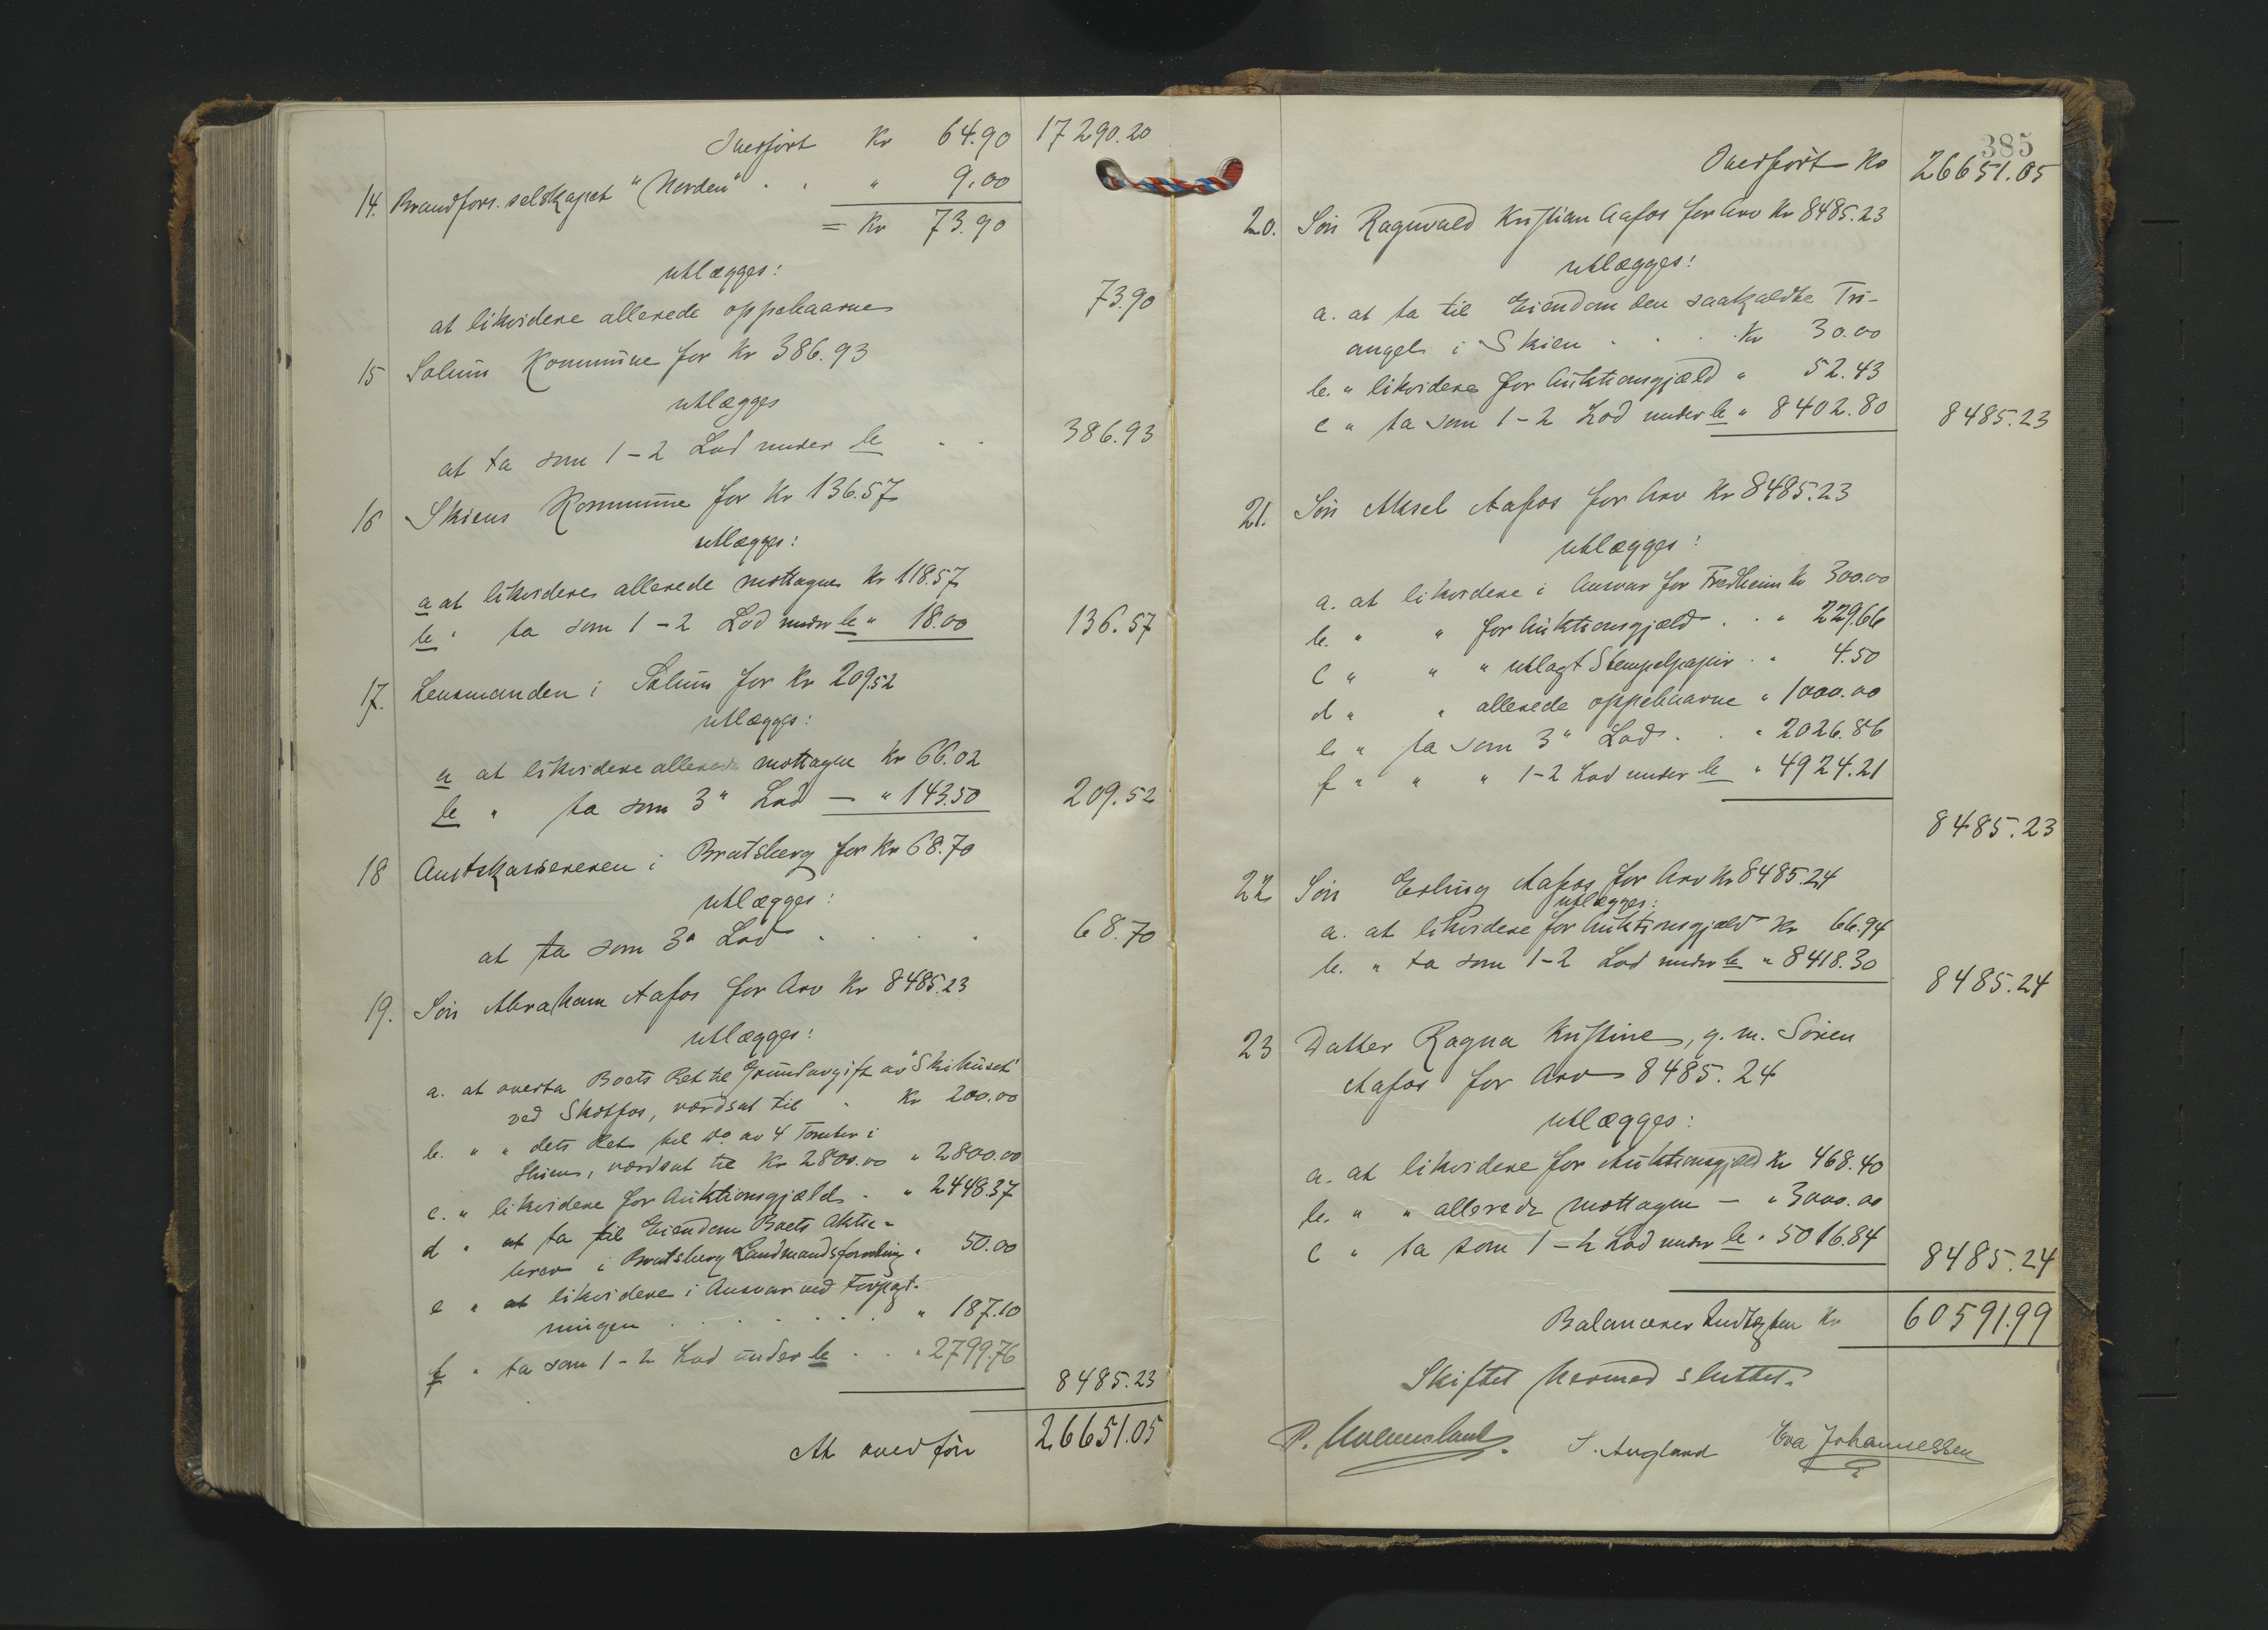 Overført Kr 64.90 17290.20
14. Brandfors. selskapet "Norden" . . " 9.00
= Kr 73.90
utlægges:
at likvidere allerede oppebaarne 73.90
15 Solum Kommune for Kr 386.93
utlægges
at ta som 1-2 Lod under b . . 386.93
16 Skiens Kommune for Kr 136.57
utlægges:
a at likvideres allerede mottagne Kr 118.57
b " ta som 1-2 Lod under b " 18.00 136.57
17. Lensmanden i Solum for Kr 209.52
utlægges:
a at likvidere allerede mottagen Kr 66.02
b " ta som 3" Lod — " 143.50 209.52
18 Amtskassereren i Bratsberg for Kr 68.70
utlægges:
at ta som 3" Lod . . . . 68.70
19. Søn Abraham Aafos for Arv Kr 8485.23
utlægges:
a. at overta Boets Ret til Grundavgift av "Skihuset"
ved Skotfos, værdsat til . Kr 200.00
b. " " dets Ret til do av 4 Tomter i
Skien, værdsat til Kr 2800.00 " 2800.00
c. " likvidere for Auktionsgjæld . " 2448.37
d " at ta til Eiendom Boets Aktie-
brev i Bratsberg Landmandsforening " 50.00
e " at likvidere i Ansvar ved Forpagt-
ningen . . . . . . " 187.10
f " ta som 1-2 Lod under b . . " 2799.76
8485.23
At overføre 26651.05
385
Overført Kr 26651.05
20. Søn Ragnvald Kristian Aafos for Arv Kr 8485.23
utlægges:
a. at ta til Eiendom den saakaldte Tri-
angel i Skien . . . Kr 30.00
b. " likvidere for Auktionsgjæld " 52.43
c " ta som 1-2 Lod under b " 8402.80 8485.23
21. Søn Aksel Aafos for Arv Kr 8485.23
utlægges:
a. at likvidere i Ansvar for Fredheim Kr 300.00
b. " " for Auktionsgjæld . . " 229.66
c " " " utlagt Stempelpapir . " 4.50
d " " allerede oppebaarne " 1000.00
e " ta som 3" Lod . . " 2026.86
f " " " 1-2 Lod under b " 4924.21
8485.23
22 Søn Erling Aafos for Arv Kr 8485.24
utlægges:
a. at likvidere for Auktionsgjæld Kr 66.94
b. " ta som 1-2 Lod under b " 8418.30
8485.24
23 Datter Ragna Kristine, g. m. Søren
Aafos for Arv 8485.24
utlægges:
a. at likvidere for Auktionsgjæld Kr 468.40
b. " " allerede mottagen — " 3000.00
c " ta som 1-2 Lod under b " 5016.84
8485.24
Balancerer Indtægten Kr 60591.99
Skiftet hermed sluttet.
S. Augland Eva Johannessen